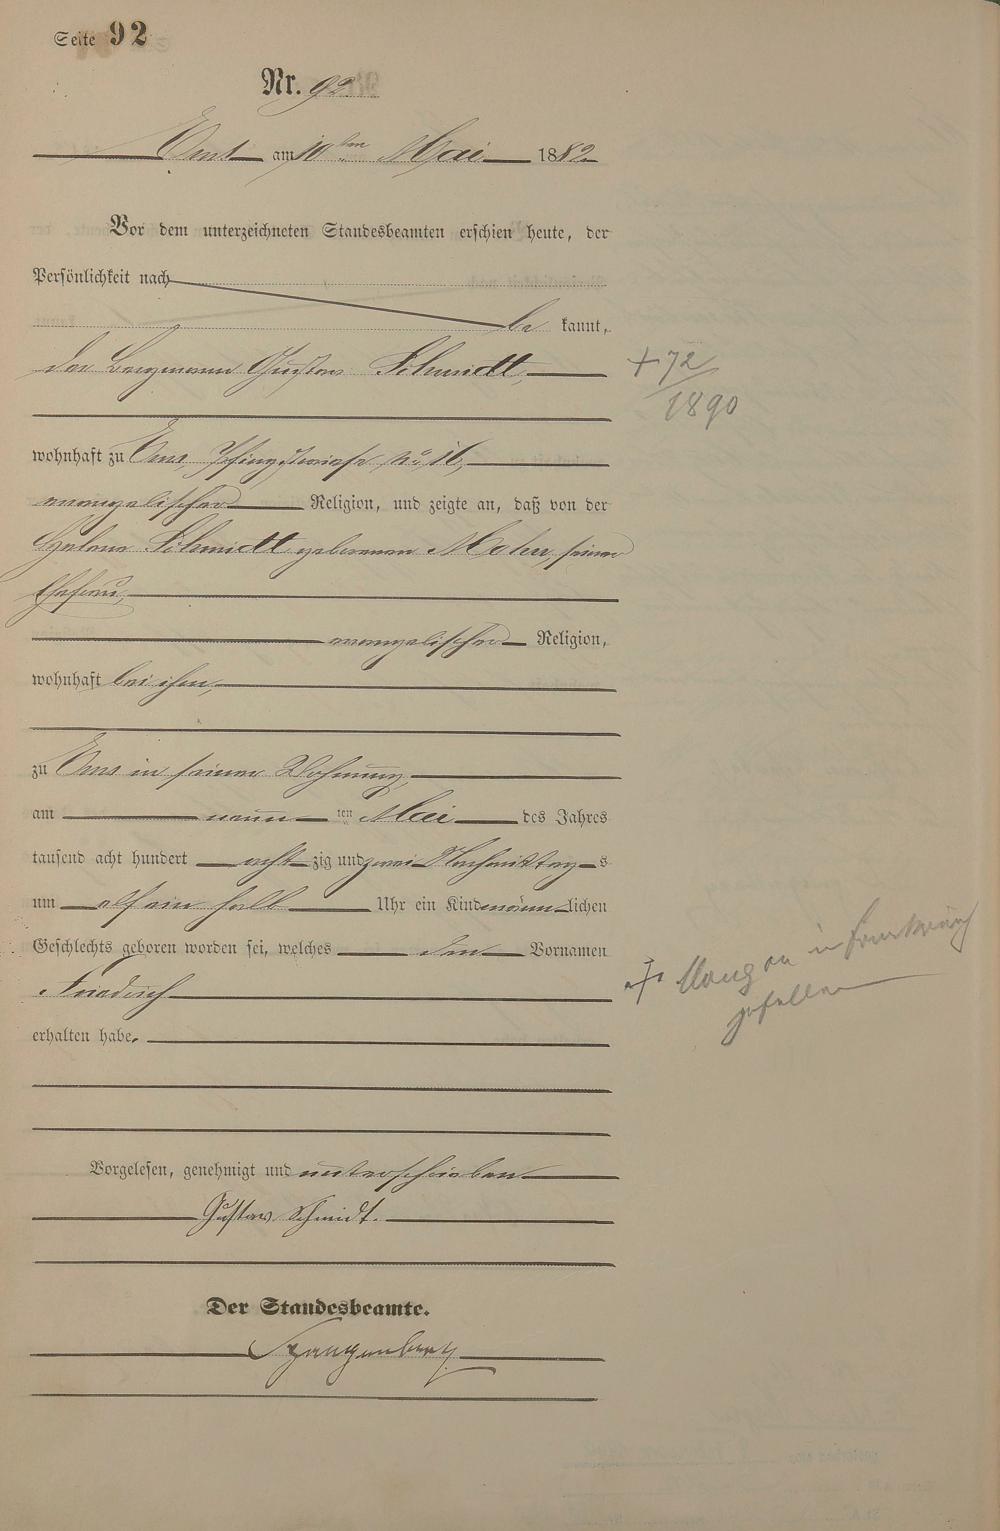 Seite 92
Nr. 92
Ems am 10ten Mai 1882
Vor dem unterzeichneten Standesbeamten erschien heute, der
Persönlichkeit nach
be kannt,
der Bergmann Gustav Schmidt,
+ 72
1890
wohnhaft zu Ems, Pfingstwiese No 16,
evangelischer Religion, und zeigte an, daß von der
Helene Schmidt geborenen Mohr, seiner
Ehefrau,
evangelischer Religion,
wohnhaft bei ihm,
zu Ems in seiner Wohnung,
am neun ten Mai des Jahres
tausend acht hundert acht zig und zwei Nachmittag s
um elf ein halb Uhr ein Kind männ lichen
Geschlechts geboren worden sei, welches den Vornamen
Friedrich
in Frankreich
gefallen
erhalten habe.
Vorgelesen, genehmigt und unterschrieben
Gustav Schmidt.
Der Standesbeamte.
Spangenberg